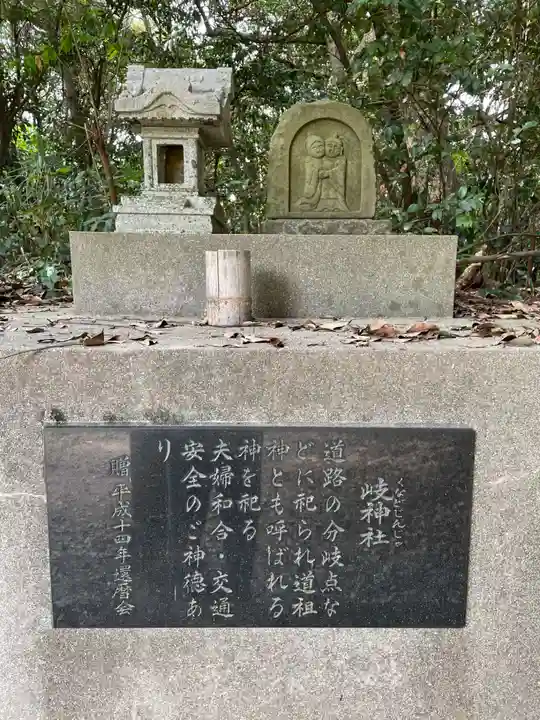 岐神社
くなどじんじゃ
道路の分岐点な
どに祀られ道祖
神とも呼ばれる
神を祀る
夫婦和合・交通
安全のご神徳あ
り
贈 平成十四年還暦会